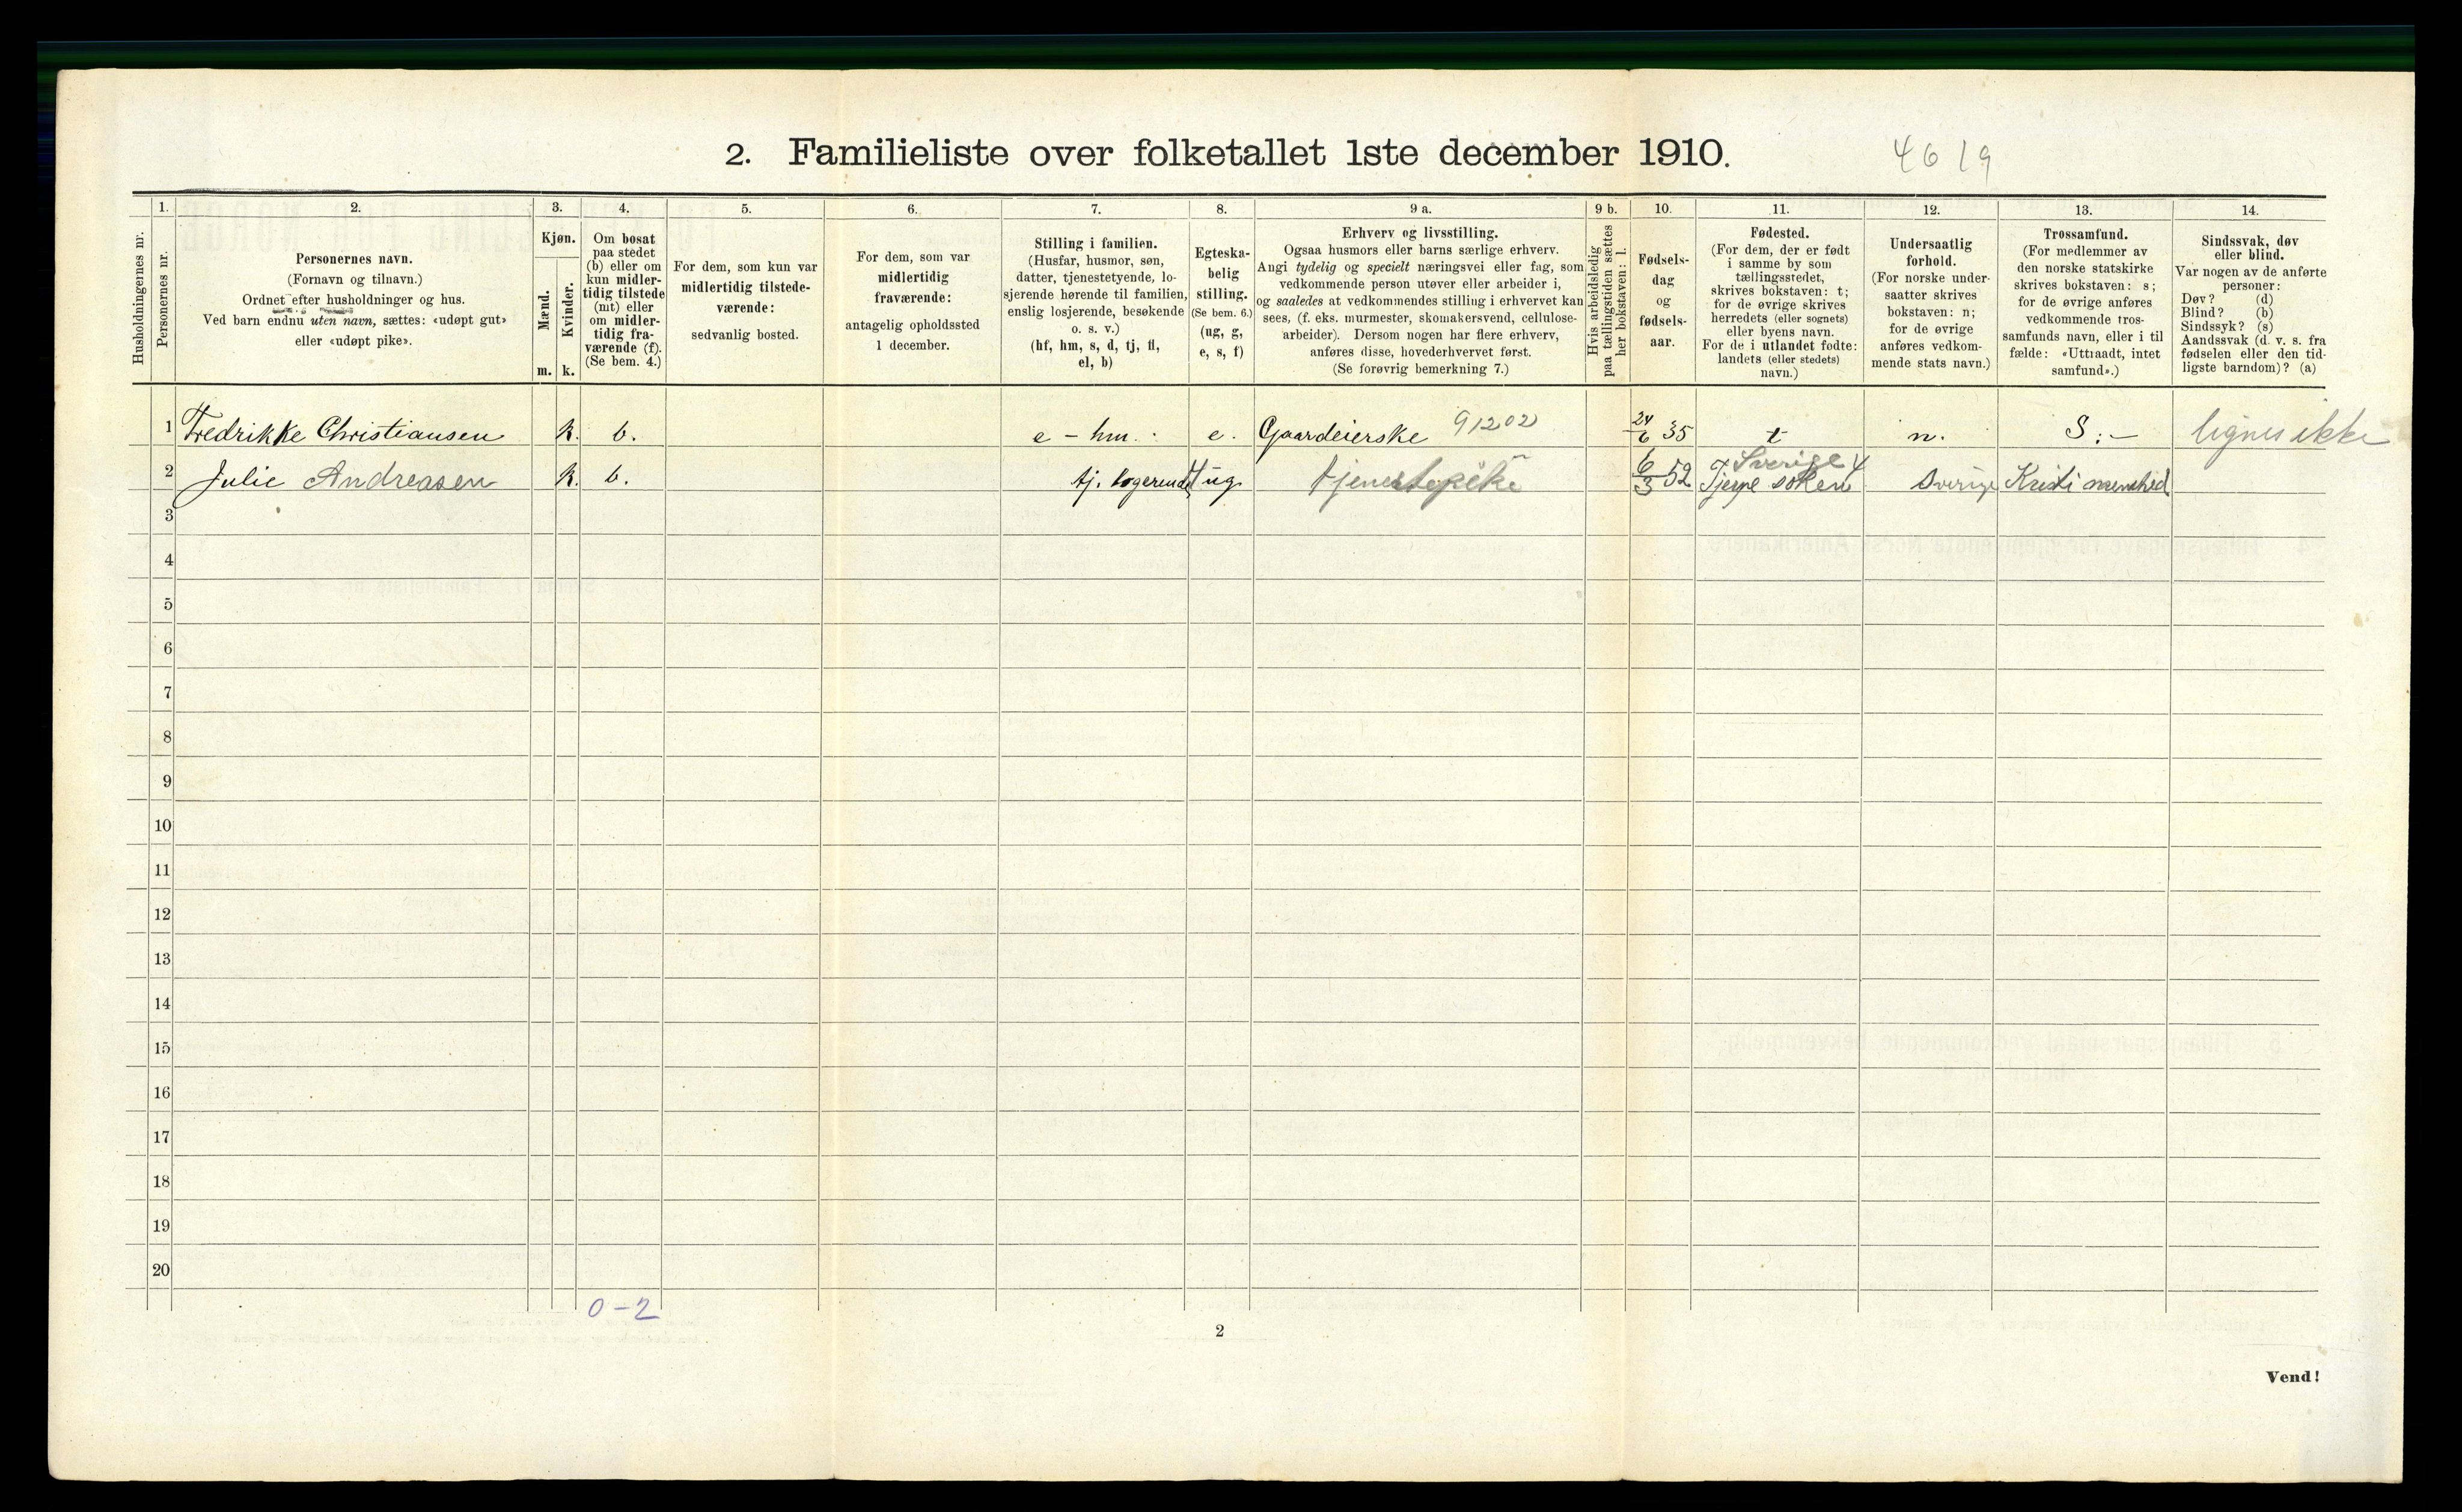 2. Familieliste over folketallet 1ste december 1910.
4619
1. 2. 3. 4. 5. 6. 7. 8. 9 a. 9 b. 10. 11. 12. 13. 14.
Husholdningernes nr.
Personernes nr.
Personernes navn.
(Fornavn og tilnavn.)
Ordnet efter husholdninger og hus.
Ved barn endnu uten navn, sættes: «udøpt gut»
eller «udøpt pike».
Kjøn.
Mænd.
Kvinder.
m. k.
Om bosat
paa stedet
(b) eller om
kun midler-
tidig tilstede
(mt) eller
om midler-
tidig fra-
værende (f).
(Se bem. 4.)
For dem, som kun var
midlertidig tilstede-
værende:
sedvanlig bosted.
For dem, som var
midlertidig
fraværende:
antagelig opholdssted
1 december.
Stilling i familien.
(Husfar, husmor, søn,
datter, tjenestetyende, lo-
sjerende hørende til familien,
enslig losjerende, besøkende
o. s. v.)
(hf, hm, s, d, tj, fl,
el, b)
Egteska-
belig
stilling.
(Se bem. 6.)
(ug, g,
e, s, f)
Erhverv og livsstilling.
Ogsaa husmors eller barns særlige erhverv.
Angi tydelig og specielt næringsvei eller fag, som
vedkommende person utøver eller arbeider i,
og saaledes at vedkommendes stilling i erhvervet kan
sees, (f. eks. murmester, skomakersvend, cellulose-
arbeider). Dersom nogen har flere erhverv,
anføres disse, hovederhvervet først.
(Se forøvrig bemerkning 7.)
Hvis arbeidsledig
paa tællingstiden sættes
her bokstaven: l.
Fødsels-
dag
og
fødsels-
aar.
Fødested.
(For dem, der er født
i samme by som
tællingsstedet,
skrives bokstaven: t;
for de øvrige skrives
herredets (eller sognets)
eller byens navn.
For de i utlandet fødte:
landets (eller stedets)
navn.)
Undersaatlig
forhold.
(For norske under-
saatter skrives
bokstaven: n;
for de øvrige
anføres vedkom-
mende stats navn.)
Trossamfund.
(For medlemmer av
den norske statskirke
skrives bokstaven: s;
for de øvrige anføres
vedkommende tros-
samfunds navn, eller i til
fælde: «Uttraadt, intet
samfund».)
Sindssvak, døv
eller blind.
Var nogen av de anførte
personer:
Døv? (d)
Blind? (b)
Sindssyk? (s)
Aandssvak (d. v. s. fra
fødselen eller den tid-
ligste barndom)? (a)
1 Fredrikke Christiansen k. b. e - hm. e. Gaardeierske 91202 24/6 35 t n. S:- lignes ikke
Sverige 4
2 Julie Andreasen k. b. tj. logerende ug. tjenestepike 6/3 52 soken Sverige
3
4
5
6
7
8
9
10
11
12
13
14
15
16
17
18
19
20
0-2
2
Vend!